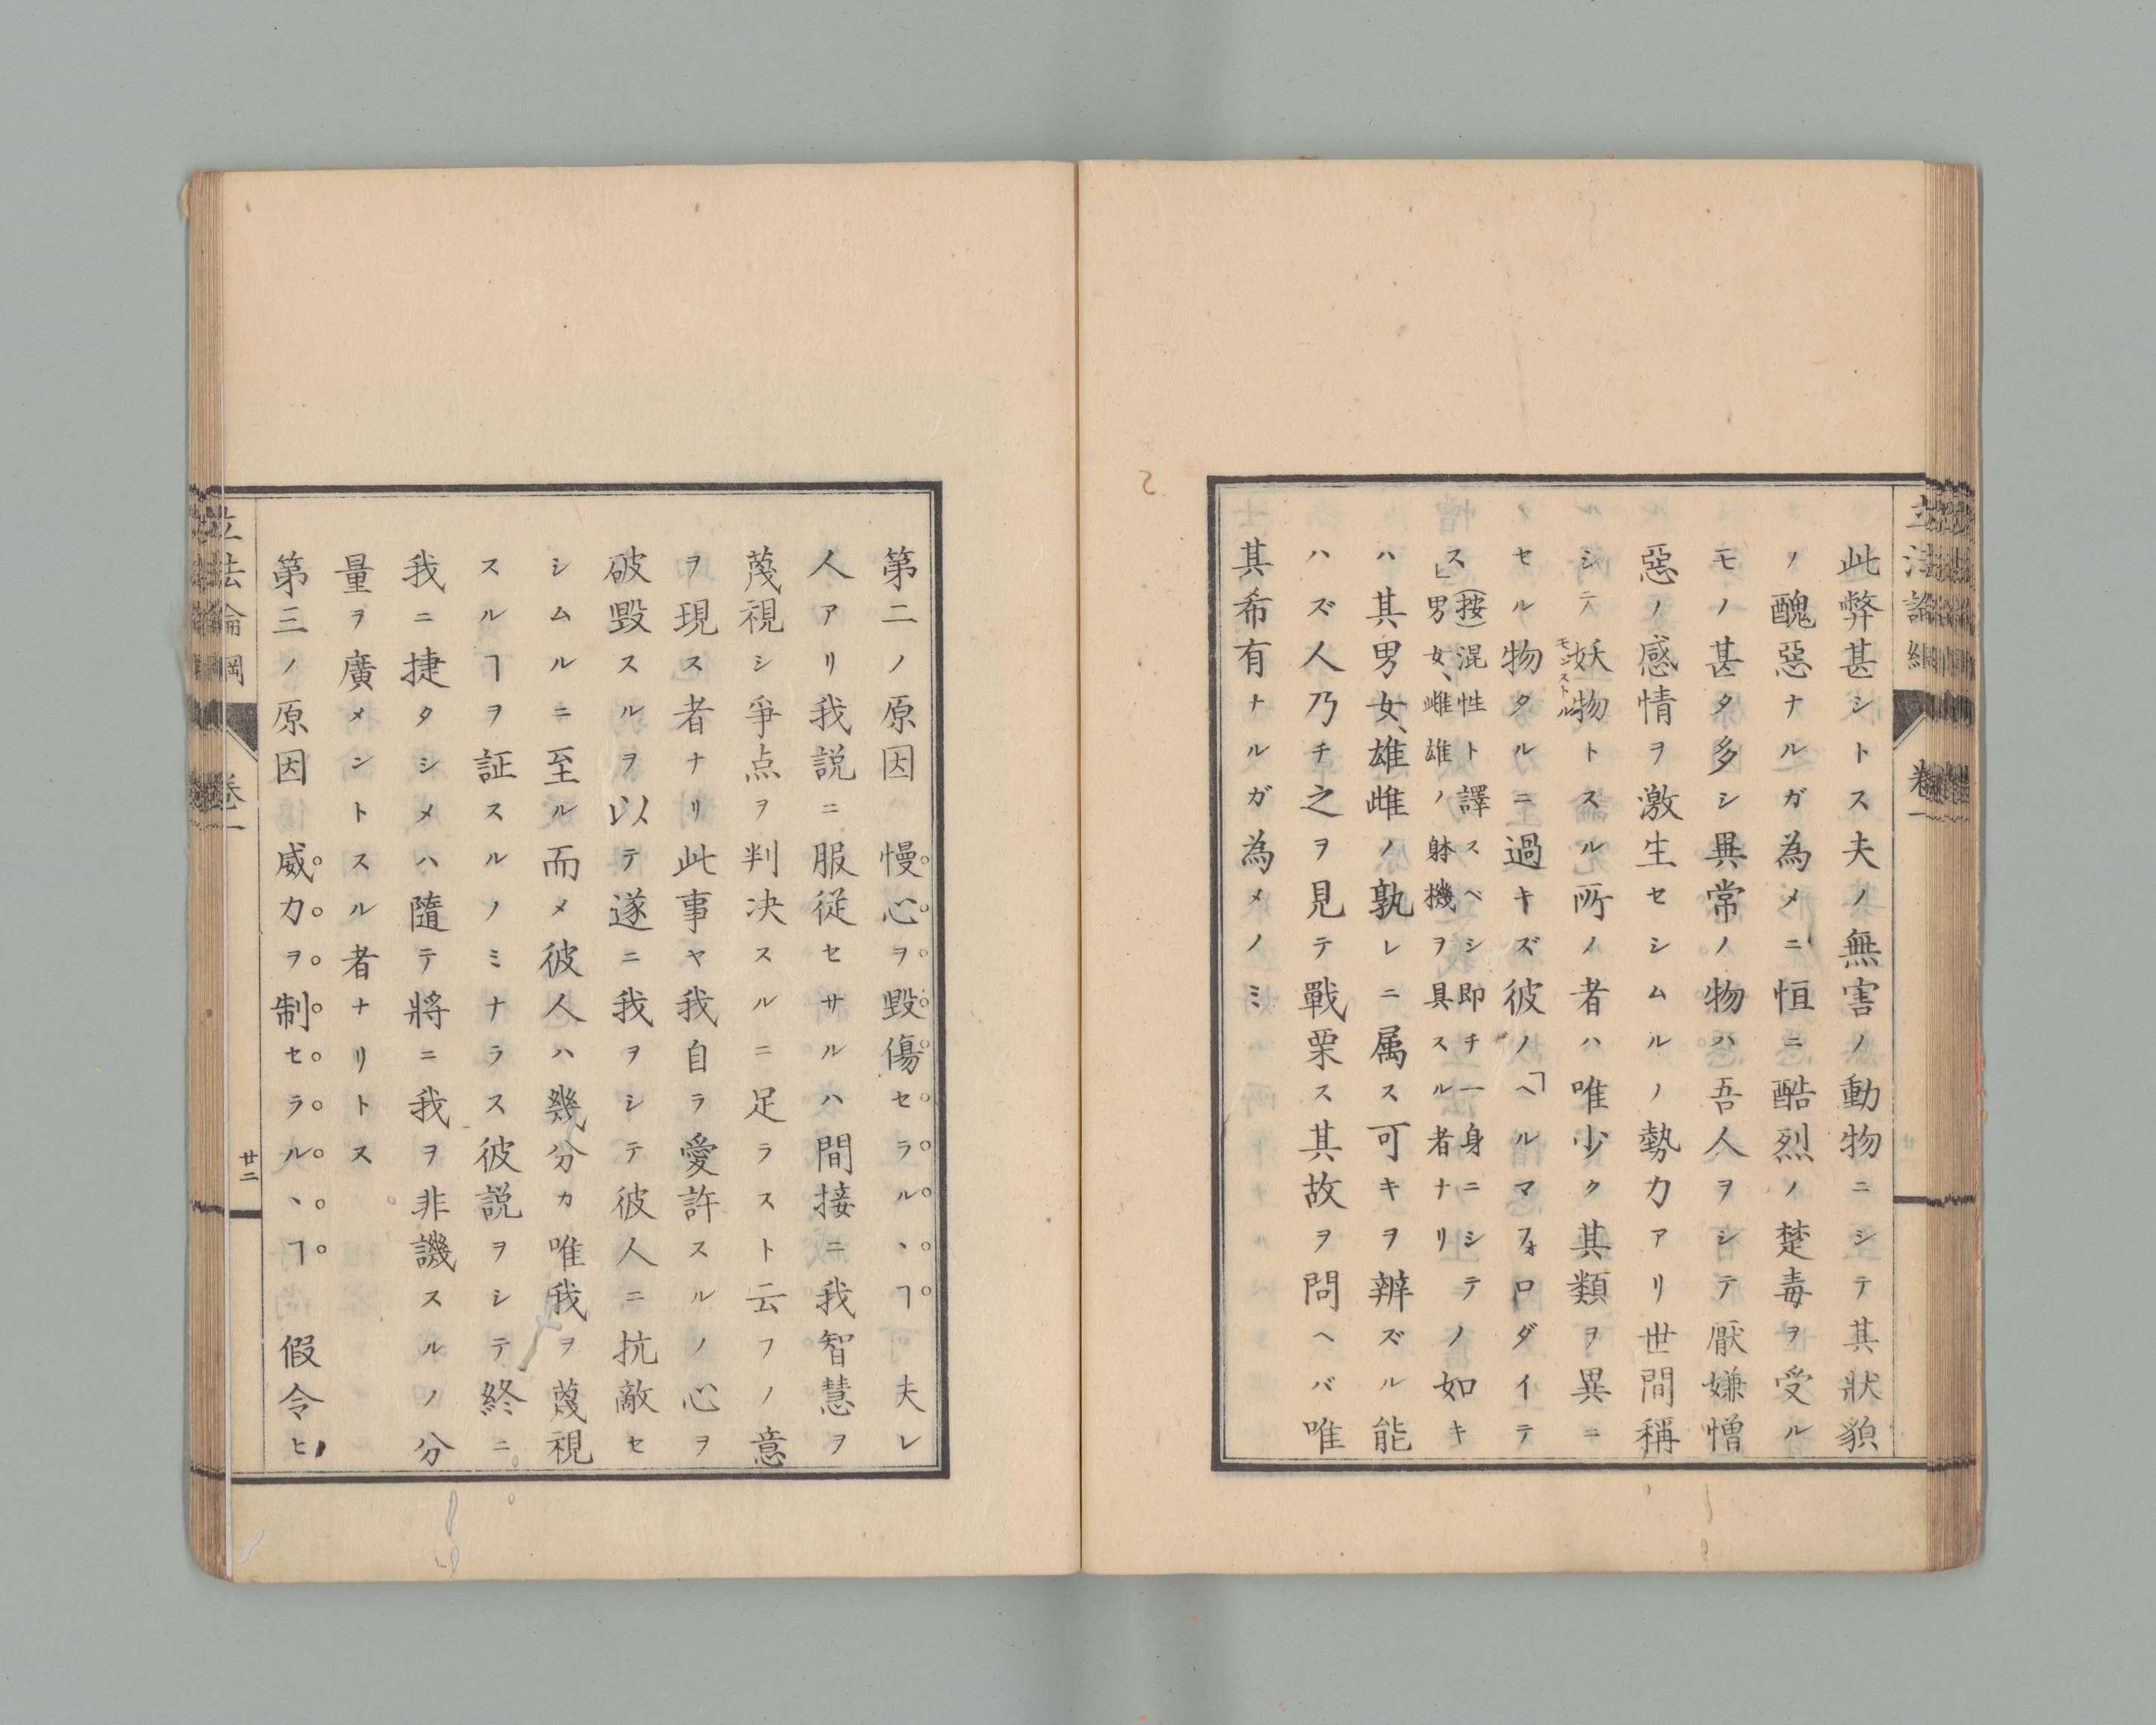 立法論綱 卷一
此弊甚シトス夫ノ無害ノ動物ニシテ其狀貌
ノ醜惡ナルガ為メニ恒ニ酷烈ノ楚毒ヲ受ル
モノ甚タ多シ異常ノ物ハ吾人ヲシテ厭嫌憎
惡ノ感情ヲ激生セシムルノ勢力アリ世間稱
シテ妖物トスル所ノ者ハ唯少ク其類ヲ異ニ
モンストル
セル物タルニ過キズ彼ノ「ヘルマフォロダイテ
ス」(按)混性ト譯スベシ即チ一身ニシテ
男女、雌雄ノ躰機ヲ具スル者ナリノ如キ
ハ其男女、雄雌ノ孰レニ属ス可キヲ辨ズル能
ハズ人乃チ之ヲ見テ戰栗ス其故ヲ問ヘバ唯
其希有ナルガ為メノミ
第二ノ原因 慢心ヲ毀傷セラルヽヿ 夫レ
人アリ我説ニ服從セサルハ間接ニ我智慧ヲ
蔑視シ爭点ヲ判决スルニ足ラスト云フノ意
ヲ現ス者ナリ此事ヤ我自ラ愛許スルノ心ヲ
破毀スルヲ以テ遂ニ我ヲシテ彼人ニ抗敵セ
シムルニ至ル而メ彼人ハ幾分カ唯我ヲ蔑視
スルヿヲ証スルノミナラス彼説ヲシテ終ニ
我ニ捷タシメハ隨テ將ニ我ヲ非譏スルノ分
量ヲ廣メントスル者ナリトス
第三ノ原因 威力ヲ制セラルヽヿ 假令ヒ
立法論綱 卷一 廿二